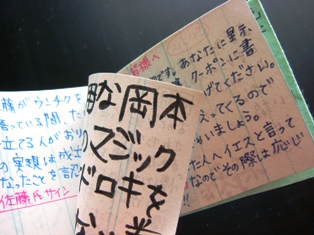 藤がウンチクを
っている間、
立てる人がおり
の実態は
なったことを認
佐藤氏サイン
用な岡本
のマジック
ドロキを
皆様へ
です。あなたに呈示
クーポンに書
げてください。
えってくるので
いましょう。
たんへイエスと言って
なのでその際は応じ
!!